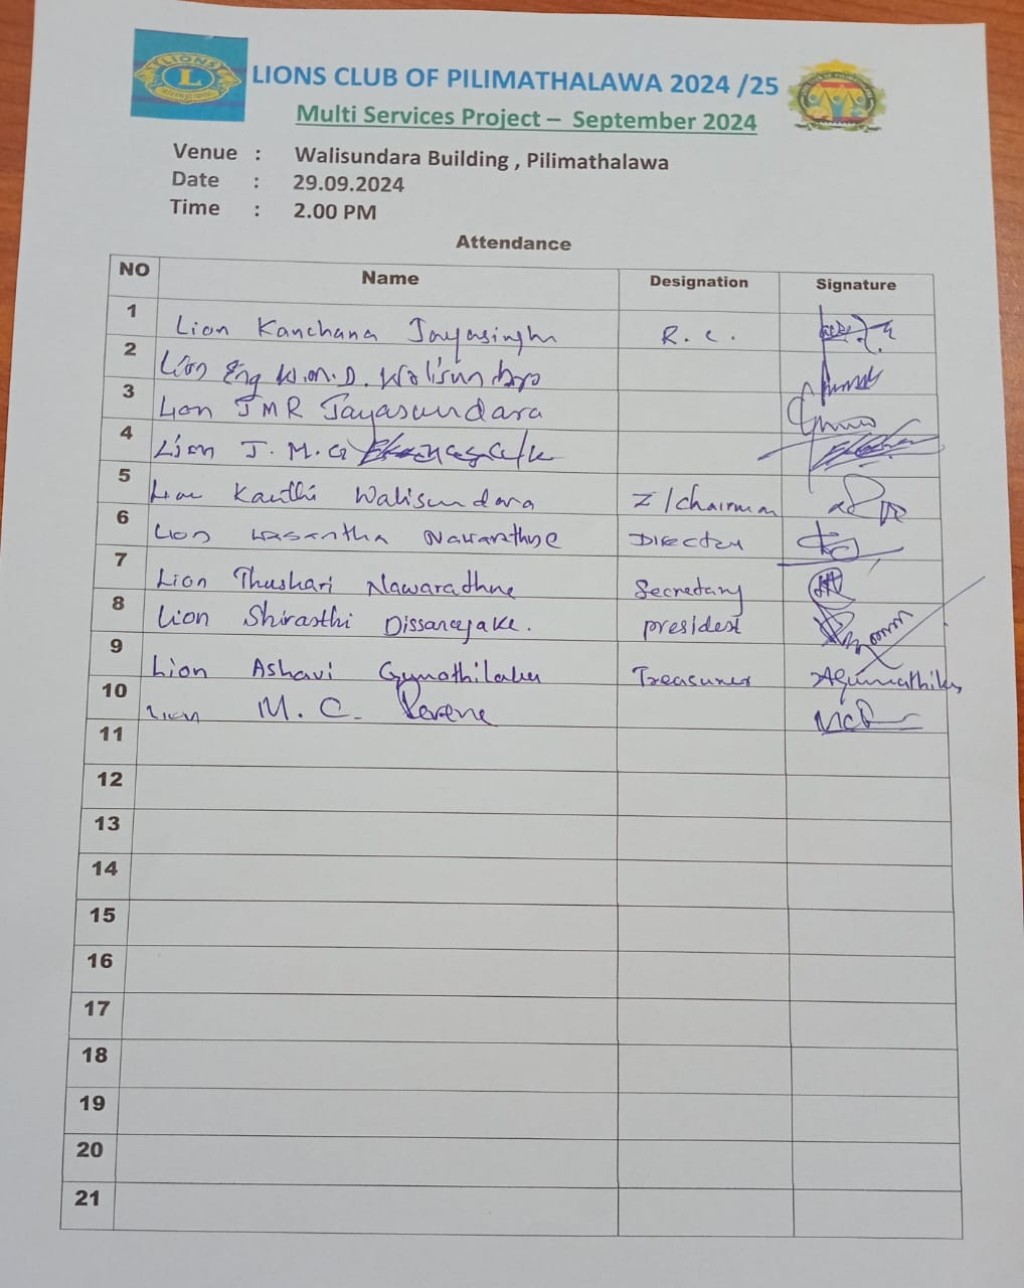 LIONS
L
LIONS CLUB OF PILIMATHALAWA 2024 /25
Multi Services Project – September 2024
Venue : Walisundara Building , Pilimathalawa
Date : 29.09.2024
Time : 2.00 PM
Attendance
NO Name Designation Signature
1 Lion Kanchana Jayasingha R. C.
2 Lion Eng W.M.D. Walisundara
3 Lion JMR Jayasundara
4 Lion J. M. G
5 Lion Kanthi Walisundara Z/Chairman
6 Lion Wasantha Nawarathne Director
7 Lion Thushari Nawarathne Secretary
8 Lion Shirasthi Dissanayake. president
9 Lion Ashavi Gunathilaka Treasurer AGunathilaka
10 Lion M. C.
11
12
13
14
15
16
17
18
19
20
21